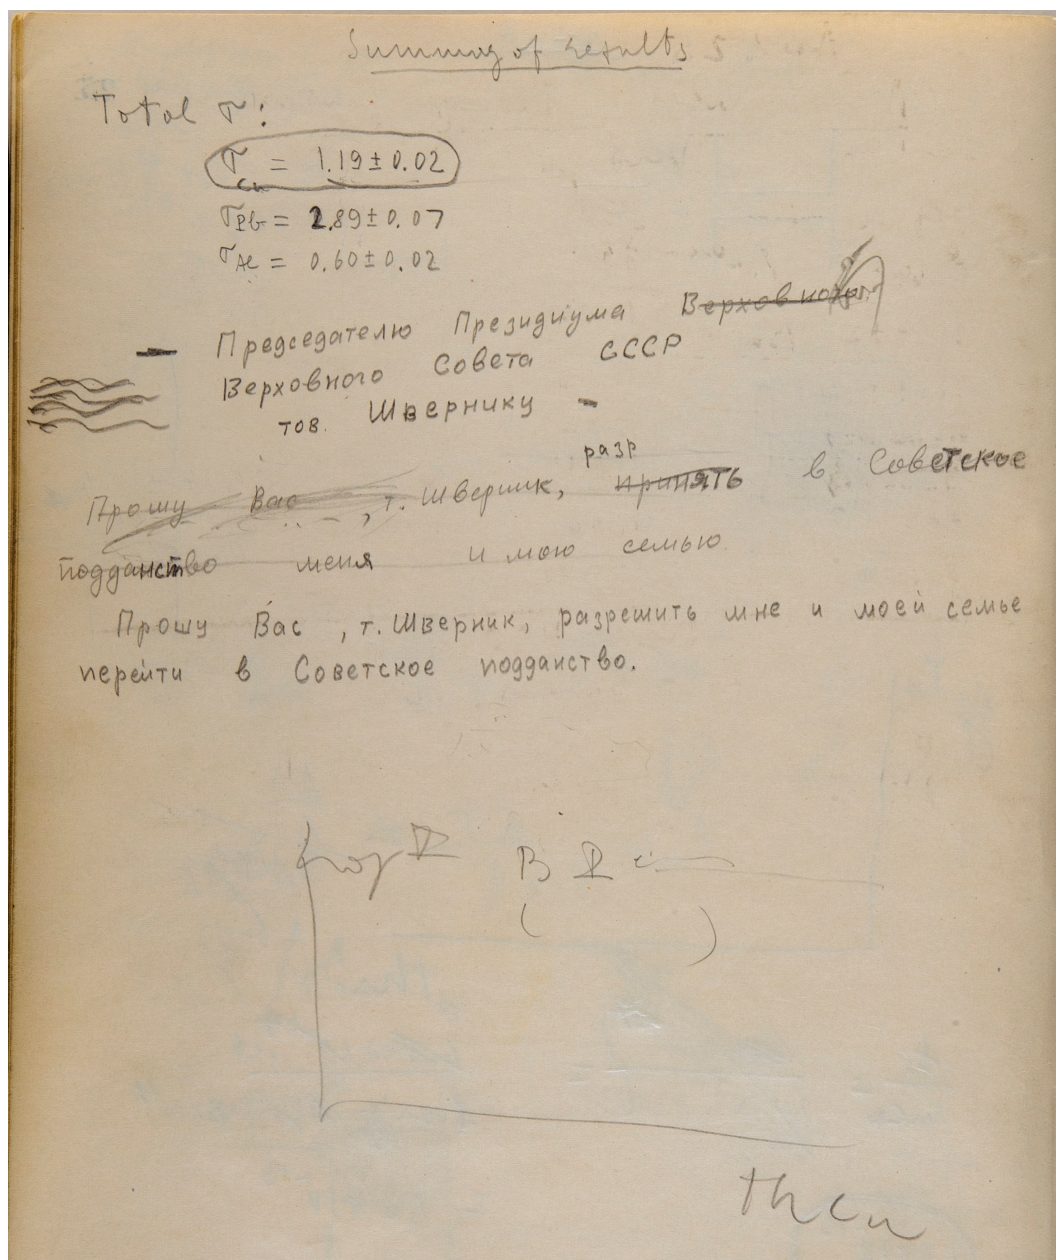 Summary of results
Total σ:
σCu = 1.19 ± 0.02
σPb = 2.89 ± 0.07
σAl = 0.60 ± 0.02
Председателю Президиума Верховного
Верховного Совета СССР
тов. Швернику -
разр
Прошу Вас, т. Шверник, принять в Советское
подданство меня и мою семью
Прошу Вас, т. Шверник, разрешить мне и моей семье
перейти в Советское подданство.